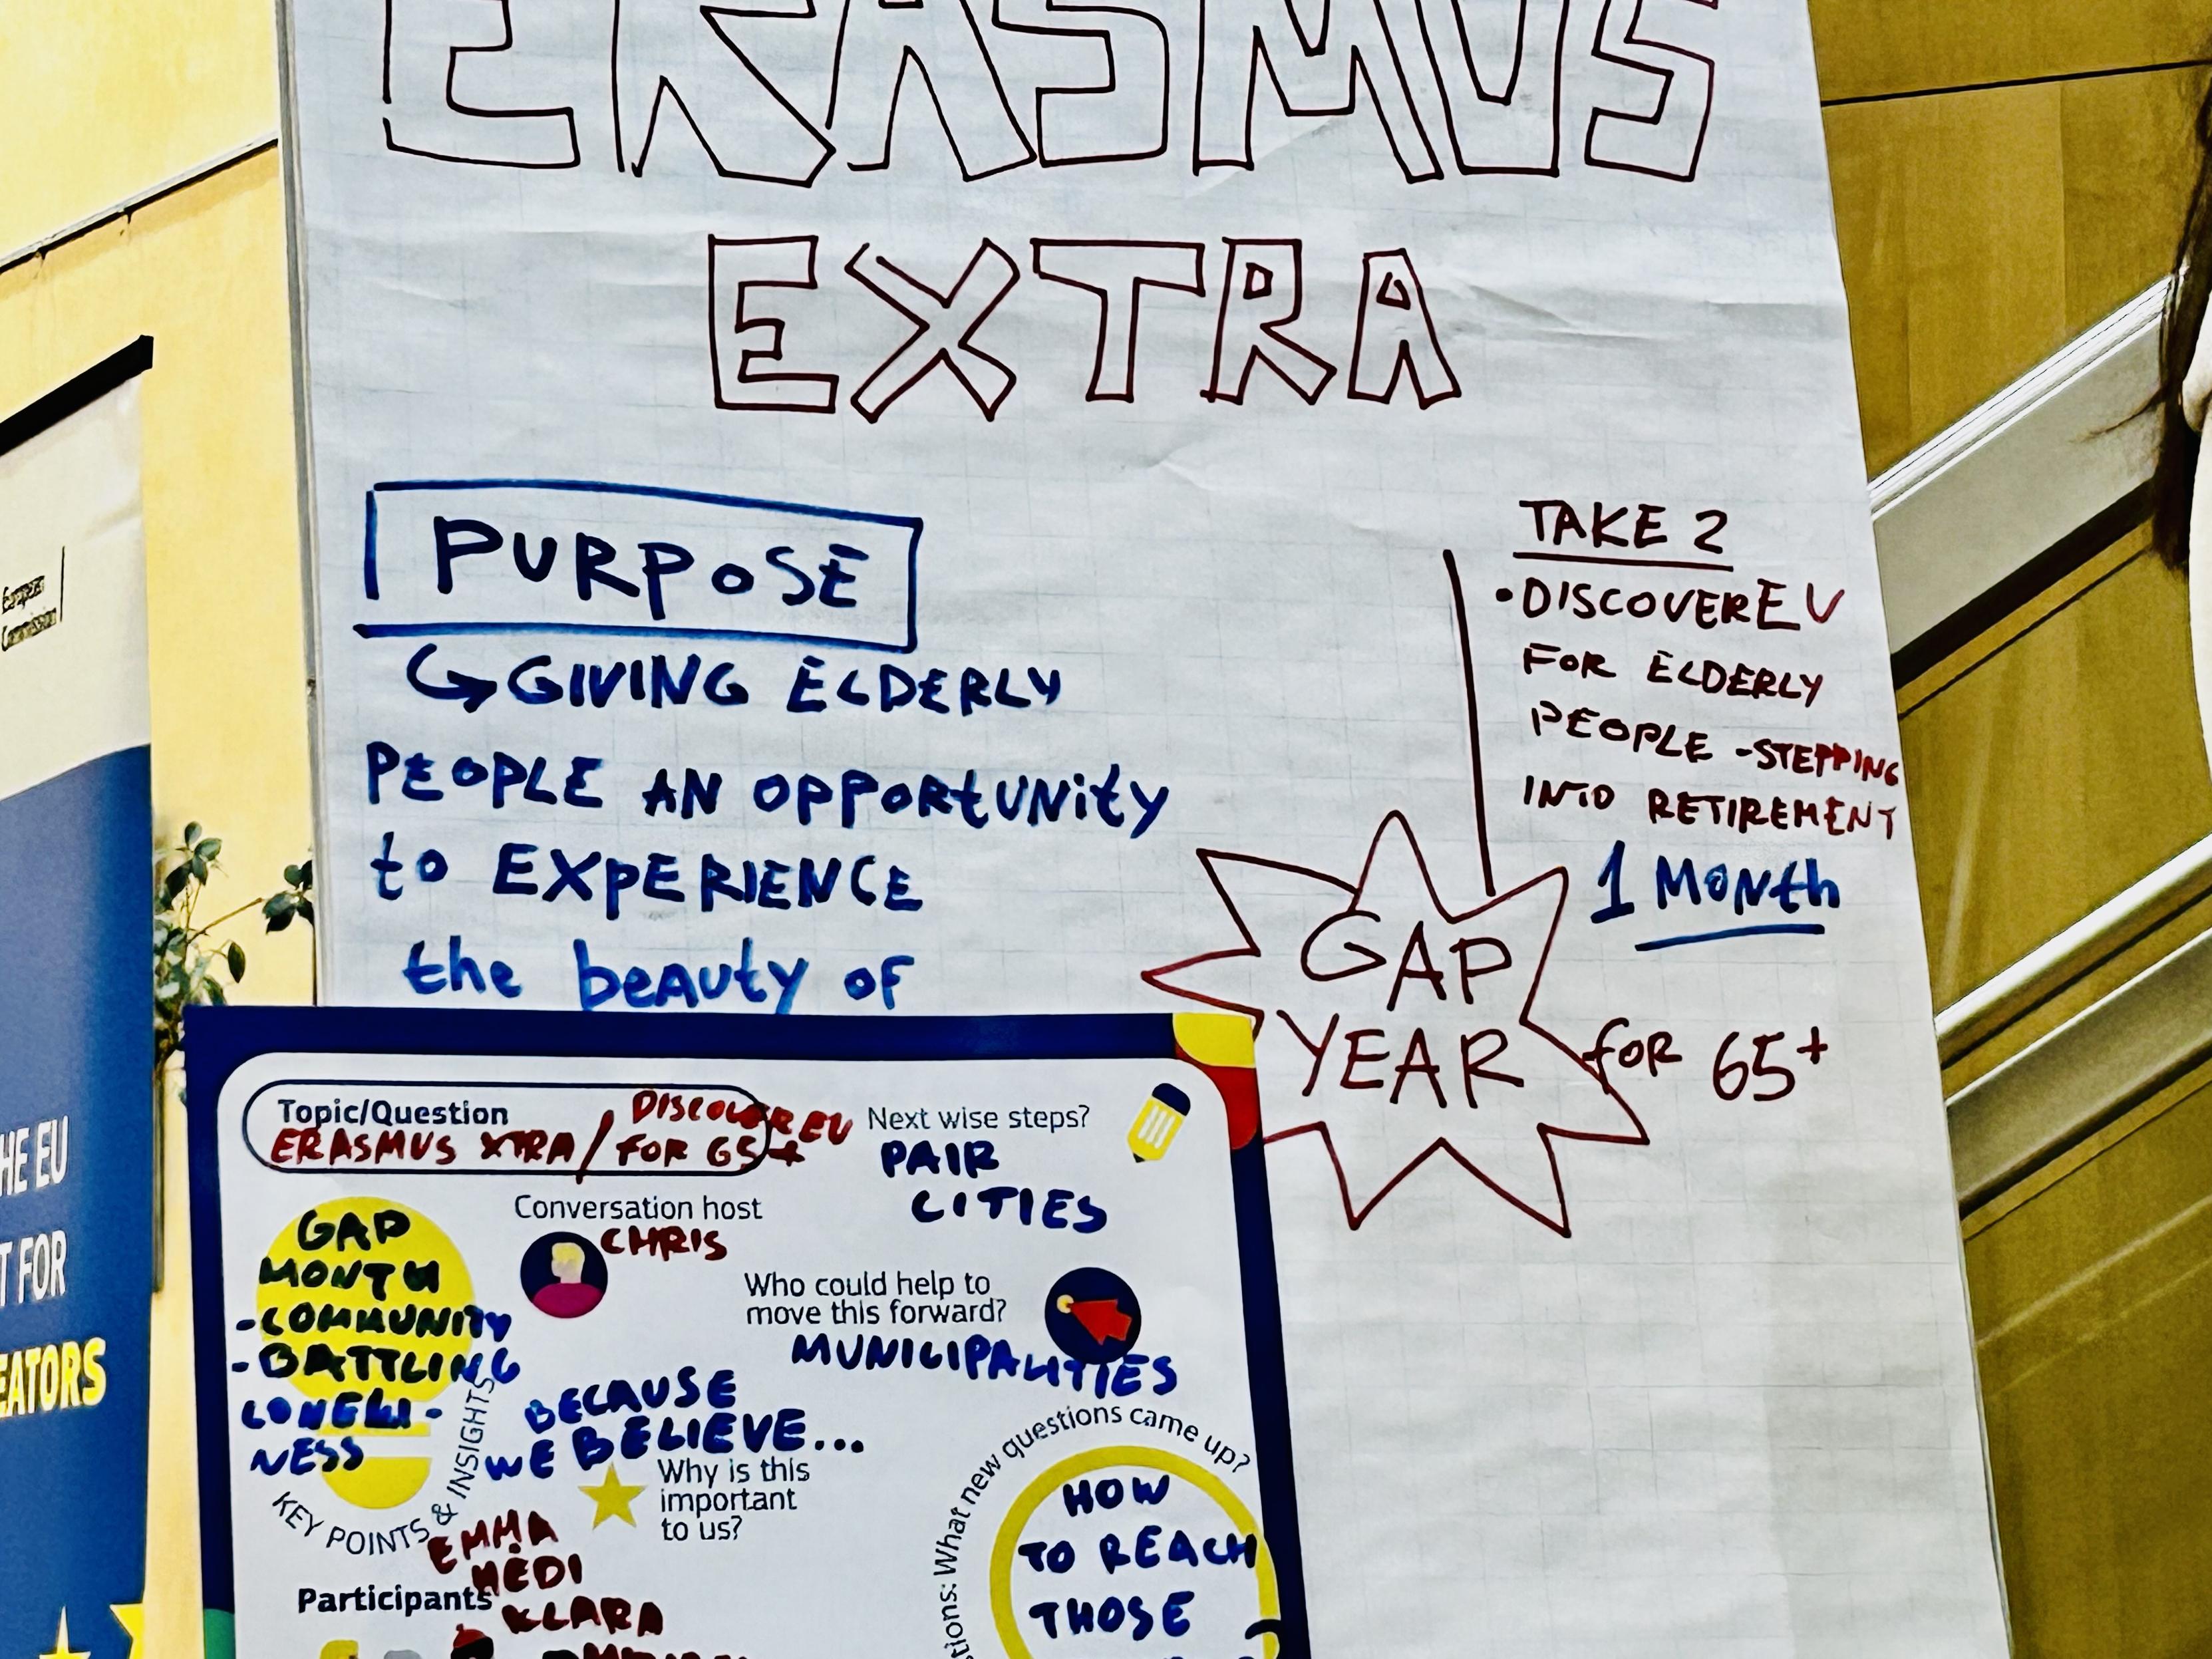 ERASMUS
EXTRA
PURPOSE
GIVING ELDERLY
PEOPLE AN OPPORTUNITY
to EXPERIENCE
the beauty of
TAKE 2
• DISCOVEREU
FOR ELDERLY
PEOPLE - STEPPING
INTO RETIREMENT
1 MONTH
GAP
YEAR
for 65+
European
Commission
HE EU
T FOR
EATORS
Topic/Question
ERASMUS XTRA / DISCOVEREU
FOR 65+
Conversation host
CHRIS
Next wise steps?
PAIR
CITIES
Who could help to
move this forward?
MUNICIPALITIES
GAP
MONTH
- COMMUNITY
- BATTLING
LONELI-
NESS
KEY POINTS & INSIGHTS
BECAUSE
WE BELIEVE...
Why is this
important
to us?
What new questions came up?
HOW
TO REACH
THOSE
Participants
EMMA
HEDI
KLARA